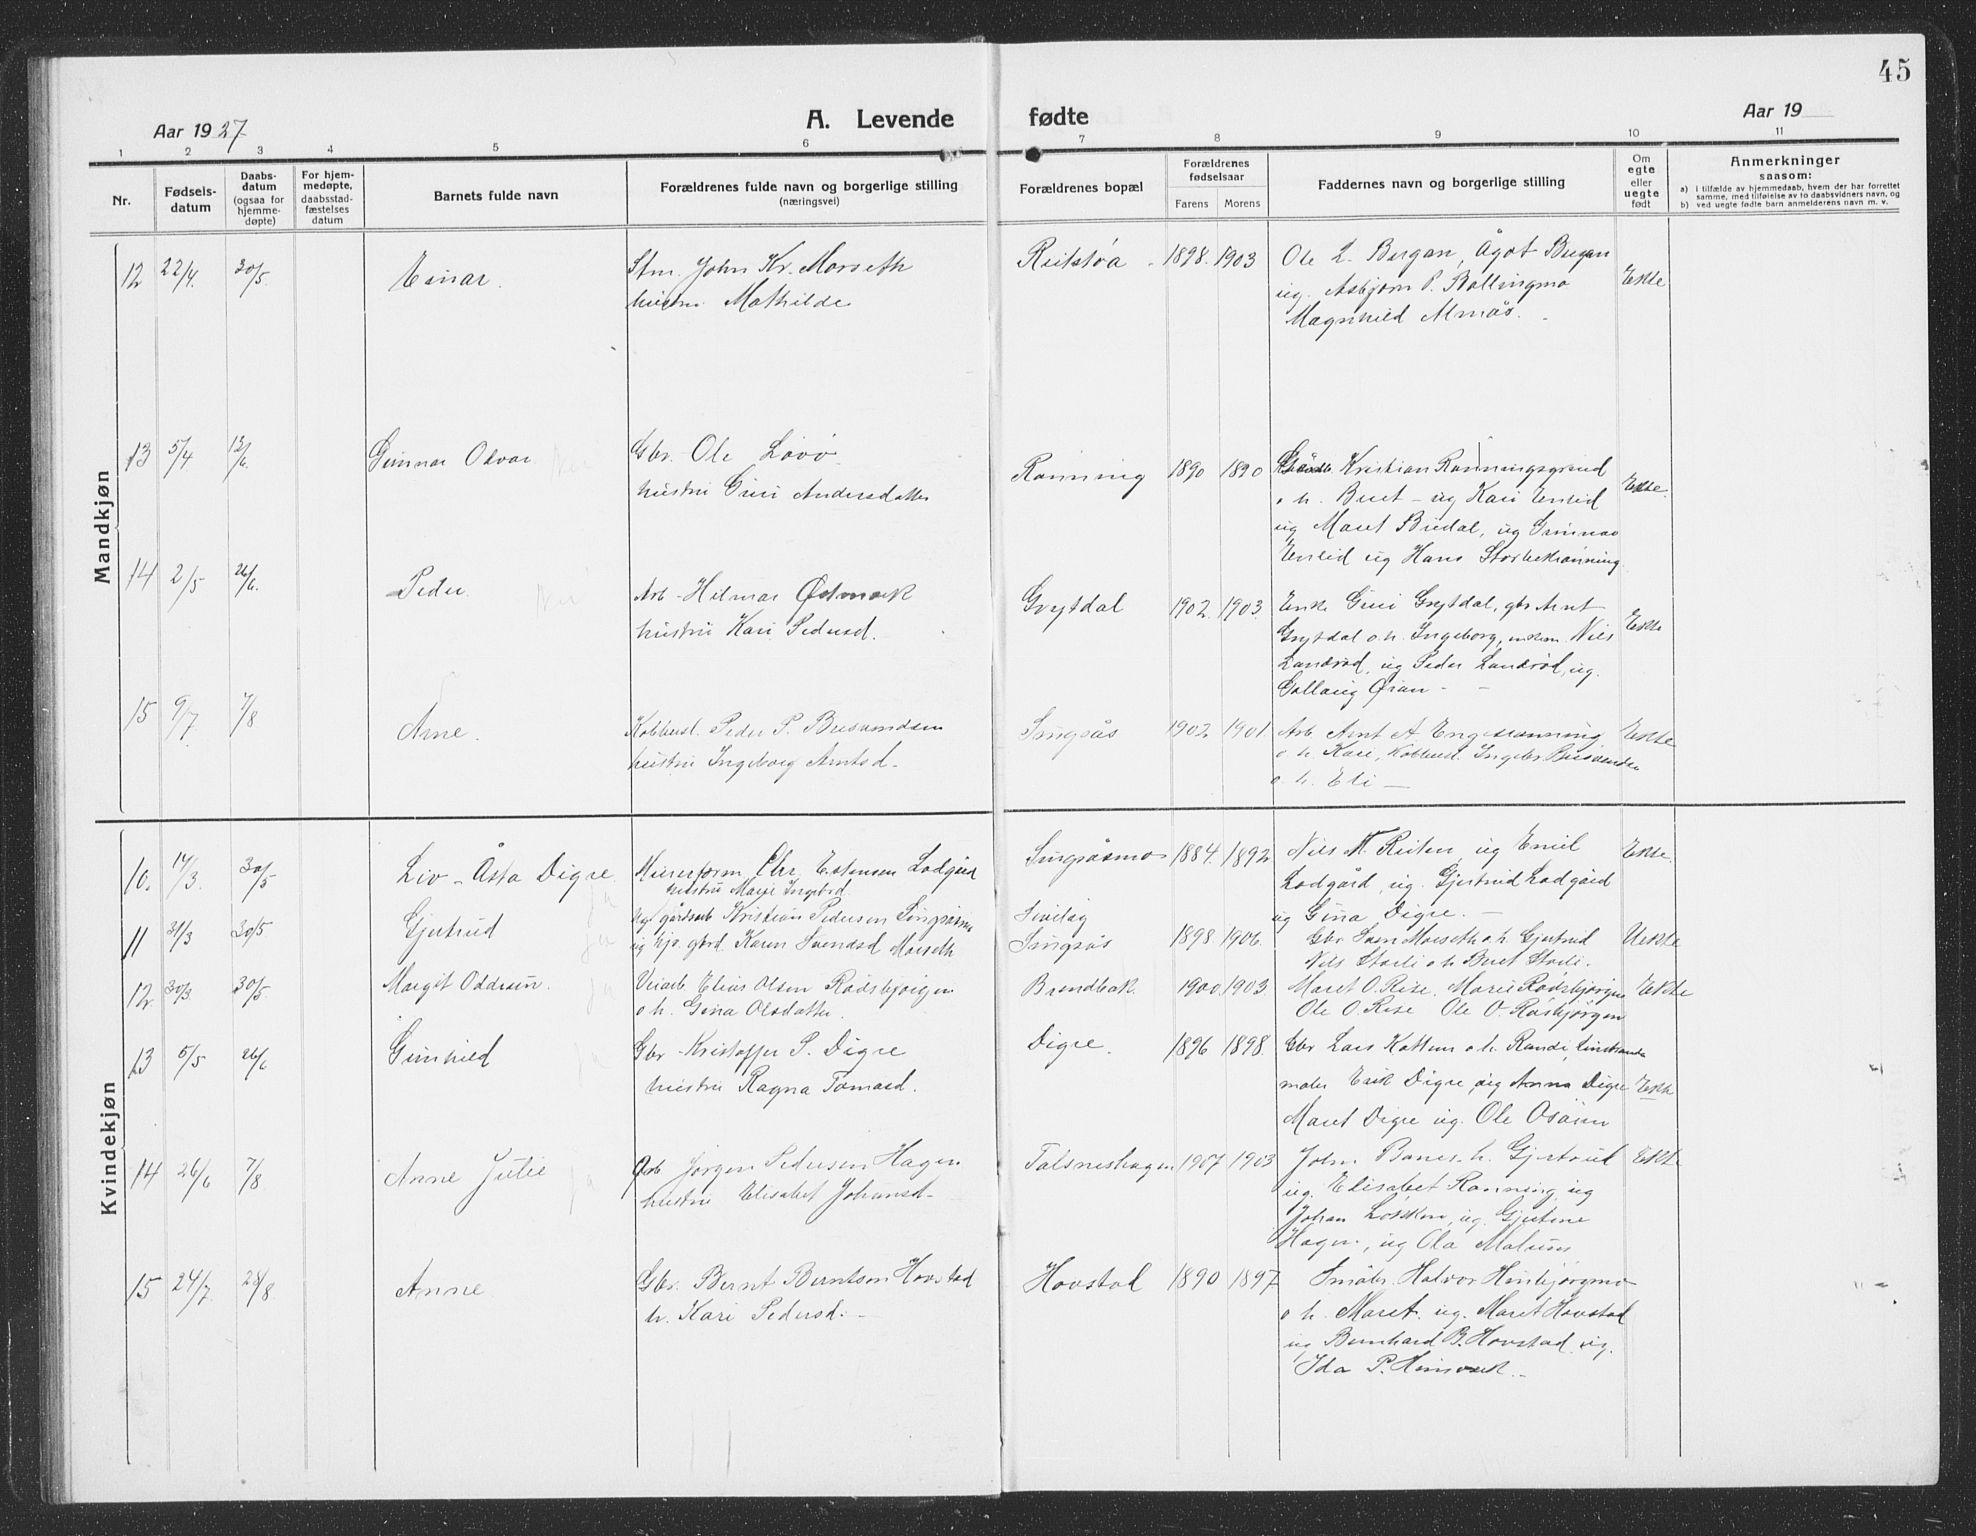 45
Aar 1927
A. Levende
fødte
Aar 19
1 2 3 4 5 6 7 8 9 10 11
Nr.
Fødsels-
datum
Daabs-
datum
(ogsaa for
hjemme-
døpte)
For hjem-
medøpte,
daabsstad-
fæstelses
datum
Barnets fulde navn
Forældrenes fulde navn og borgerlige stilling
(næringsvei)
Forældrenes bopæl
Forældrenes
fødselsaar
Farens Morens
Faddernes navn og borgerlige stilling
Om
egte
eller
uegte
født
Anmerkninger
saasom:
a) i tilfælde av hjemmedaab, hvem der har forrettet
samme, med tilføielse av to daabsvidners navn, og
b) ved uegte fødte barn anmelderens navn m. v.
Mandkjøn
12 22/4. 30/5. Einar. Stm. John Kr. Morseth Reitstøa 1898. 1903 Ole L. Bergan, Ågot Bergan Ekte
hustru Mathilde
og. Asbjørn P. Rollingmo
Magnhild Almås.
13 5/4 12/6. Gunnar Odvar Nei Gbr. Ole Løvø Rønning 1890 1890 Kristian Rønningsgrind Ekte.
hustru Guri Andersdatter
o. h. Beret - og Kari Enlid
og Maret Bredal, og Gunnar
Enlid og Hans Storbekrønning
14 2/5 26/6. Peder. Nei Arb. Hilmar Østmoek Grytdal 1902. 1903. Enke Guri Grytdal, gbr Arnt Ekte
hustru Kari Pedersd.
Grytdal o.h. Ingeborg, enkem. Nils
Landrød, og Peder Landrød, og.
Gollaug Øian -
15 9/7. 7/8 Arne. Kobbersl. Peder P. Busvendsen Singsås 1902 1901 Arb Arnt A Engesrønning Ekte
hustru Ingeborg Arntsd.
o. h. Kari, Kobbersl.
o. h. Eli -
Kvindekjøn
10. 14/3. 30/5 Liv - Åsta Digre ja Meieriform. Chr. Estensen Lodgård Singsåsmo 1884. 1892 Nils M. Reiten, og Emil Ekte.
hustru Marie Ingebrd.
Lodgård, og. Gjertrud Lodgård
og Gina Digre. -
11 31/3 30/5 Gjertrud ja Ug. gårdsarb Kristian Pedersen Singsåsmo
og hjv. gbrd. Karen Svendsd Morseth
Singsås 1898. 1906. Gbr. Sven Morseth o.h. Gjertrud Uekte
Nils Storli o.h. Beret Storli.
12. 30/3. 30/5. Margit Oddrun. ja Veiarb. Elias Olsen Rødsbjørgen Brandbak. 1900. 1903. Maret O. Rise. Marie Rødsbjørgen Ekte
o h. Gina Olsdatter.
Ole O. Rise Ole O. Røsbjørgen
13 5/5 26/6 Gunhild ja Gbr. Kristoffer S. Digre Digre. 1896 1898. Gbr Lars Kottum o.h. Randi,
hustru Ragna Tomasd.
maler Erik Digre, og Anna Digre Ekte
Maret Digre og. Ole Osøien
14 26/6 7/8. Anne Julie ja Arb Jørgen Pedersen Hagen Talsneshagen 1907 1903 John Banes. h. Gjertrud Ekte
hustru Elisabet Johansd.
og. Elisabet Rønning, og
Johan Løkken, og. Gjertine
Hagen, og Ola Moluns
15 24/7. 28/8 Anne Gbr. Bernt Berntsen Hovstad Hovstad 1890 1897 Småbr. Halvor Hinbjørgmo
h. Kari Pedersd. -
o h. Maret. og. Maret Hovstad
og Bernhard B. Hovstad. og.
Ida P.